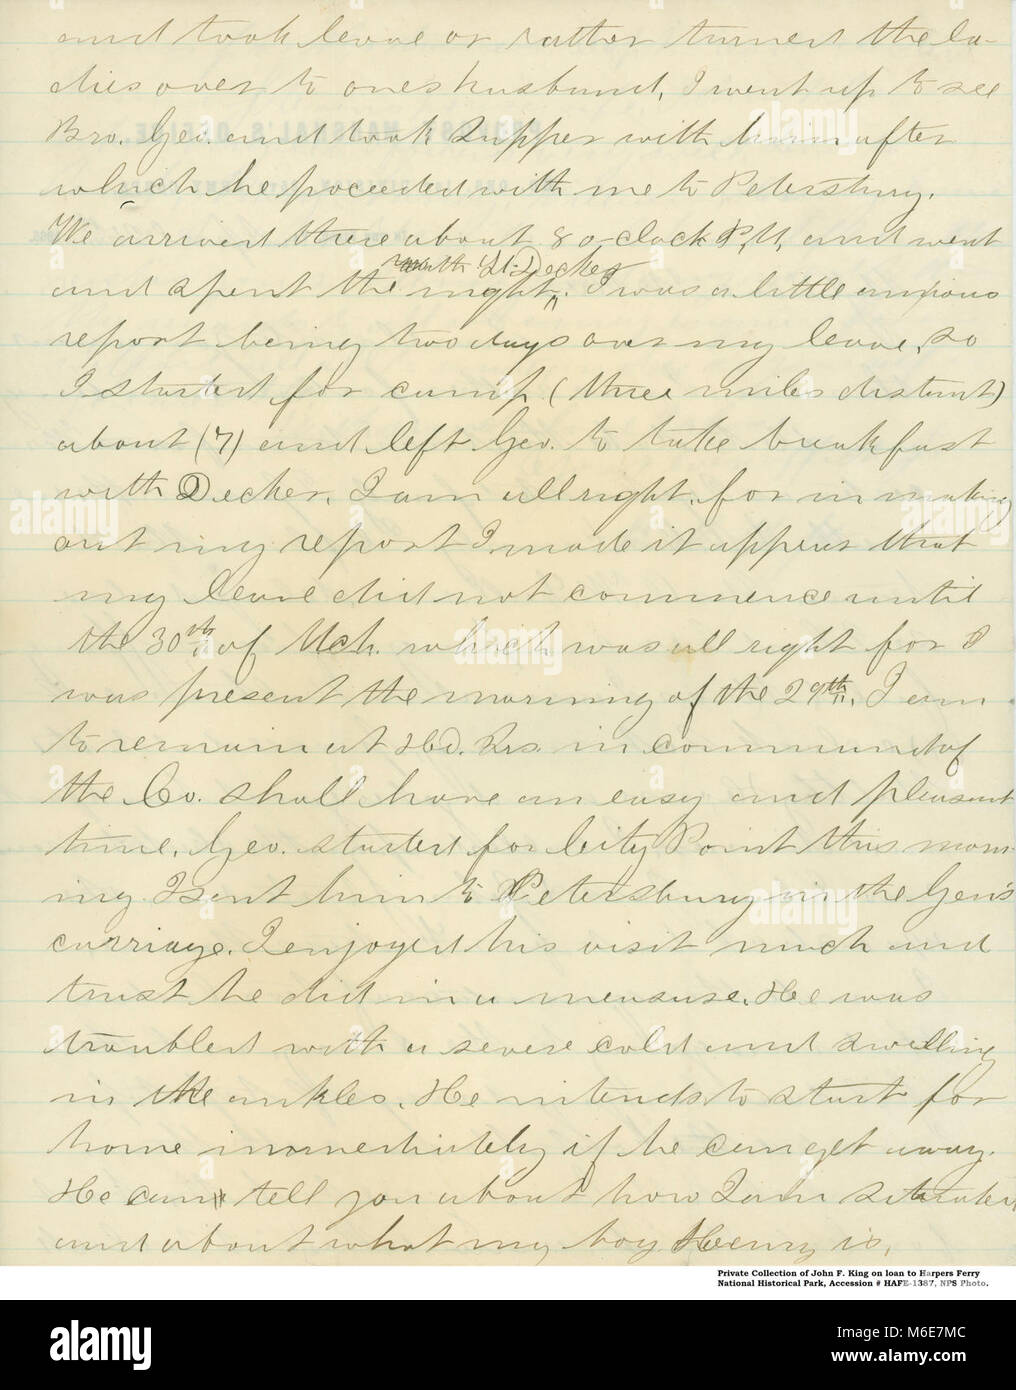 and took leave or rather turned the la-
dies over to ones husband, I went up to see
Bro. Geo. and took supper with him after
which he proceeded with me to Petersburg.
We arrived there about 8 o-clock P,M, and went
with Decker
and spent the night. I was a little anxious
report being two days over my leave, so
I started for camp (three miles distant)
about (7) and left Geo. to take breakfast
with Decker, I am all right, for in making
out my report I made it appear that
my leave did not commence until
the 30th of Mch. which was all right for I
was present the morning of the 29th, I am
to remain at Hd. Qrs. in command of
the Co. shall have an easy and pleasant
time, Geo. started for City Point this morn-
ing I sent him to Petersburg in the Gen's
carriage. I enjoyed his visit much and
trust he did in a measure, He was
troubled with a severe cold and swelling
in the ankles, He intends to start for
home immediately if he can get away.
He can tell you about how I am situated
and about what my boy Henry is,
Private Collection of John F. King on loan to Harpers Ferry
National Historical Park, Accession # HAFE-1387, NPS Photo.
alamy
Image ID: M6E7MC
www.alamy.com